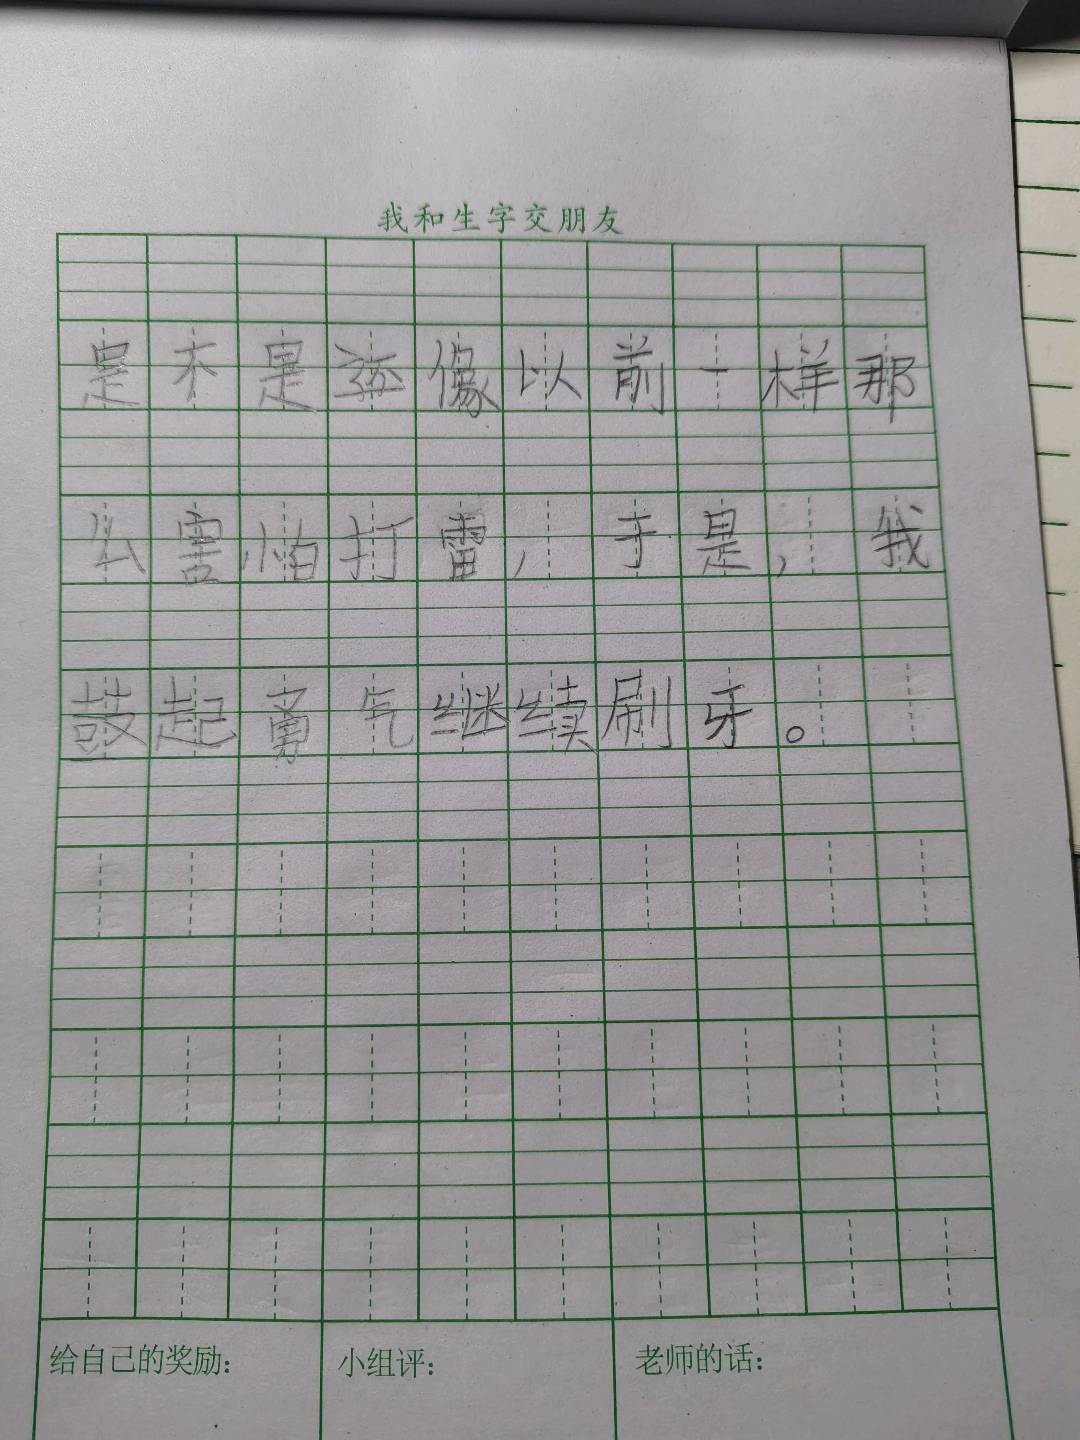 我和生字交朋友
是不是还像以前一样那
么害怕打雷，于是，我
鼓起勇气继续刷牙。
给自己的奖励：
小组评：
老师的话：